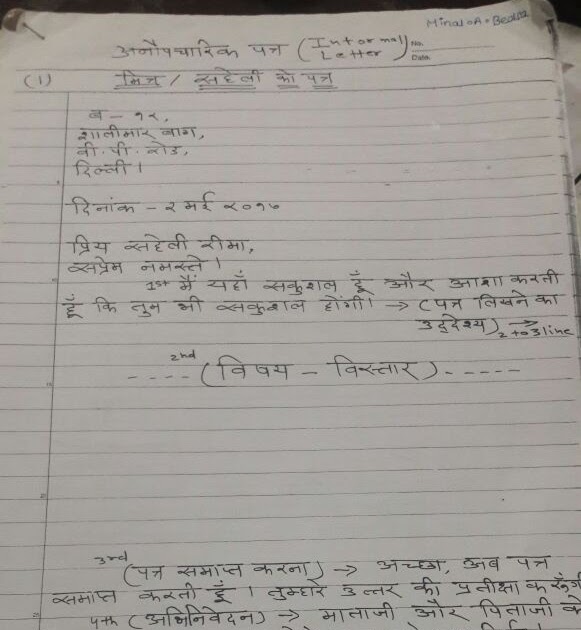 Minal . A . Besara
अनौपचारिक पत्र (Informal Letter)
No.
Date
(1) मित्र / सहेली को पत्र
ब - १२,
शालीमार बाग,
वी. पी. रोड,
दिल्ली।
दिनांक - २ मई २०१७
प्रिय सहेली रीमा,
सप्रेम नमस्ते।
1st मैं यहाँ सकुशल हूँ और आशा करती
हूँ कि तुम भी सकुशल होंगी। → (पत्र लिखने का
उद्देश्य) 2 to 3 line
2nd
---- (विषय - विस्तार) -----
3rd
(पत्र समाप्त करना) → अच्छा, अब पत्र
समाप्त करती हूँ। तुम्हारे उत्तर की प्रतीक्षा करूँगी
4th (अभिनिवेदन) → माताजी और पिताजी को